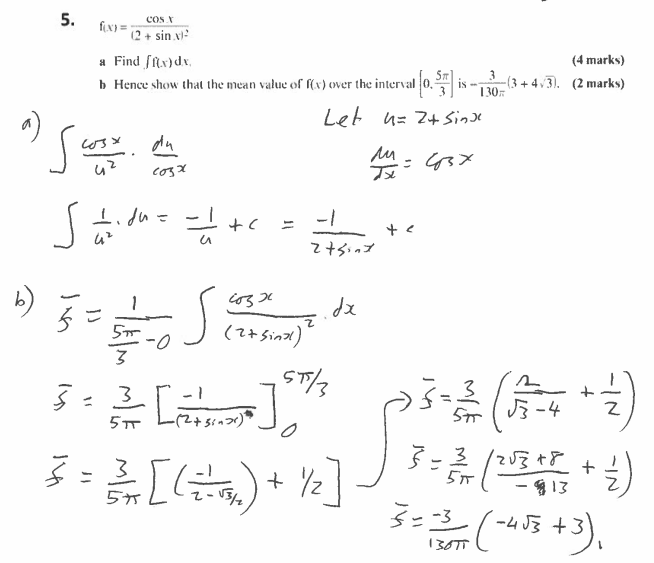 5. f(x) = cos x / (2 + sin x)²
a Find ∫f(x)dx. (4 marks)
b Hence show that the mean value of f(x) over the interval [0, 5π/3] is −3/(130π)(3 + 4√3). (2 marks)
Let u = 2+sinx
a) ∫ cosx/u² . du/cosx
du/dx = cosx
∫ 1/u² . du = -1/u + c = -1/(2+sinx) + c
b) f̄ = 1/(5π/3 - 0) ∫ cosx/(2+sinx)² . dx
f̄ = 3/5π [-1/(2+sinx)]₀^5π/3
f̄ = 3/5π [(-1/(2-√3/2)) + 1/2]
f̄ = 3/5π (2/(√3-4) + 1/2)
f̄ = 3/5π ((2√3+8)/-13 + 1/2)
f̄ = -3/130π (-4√3 + 3).